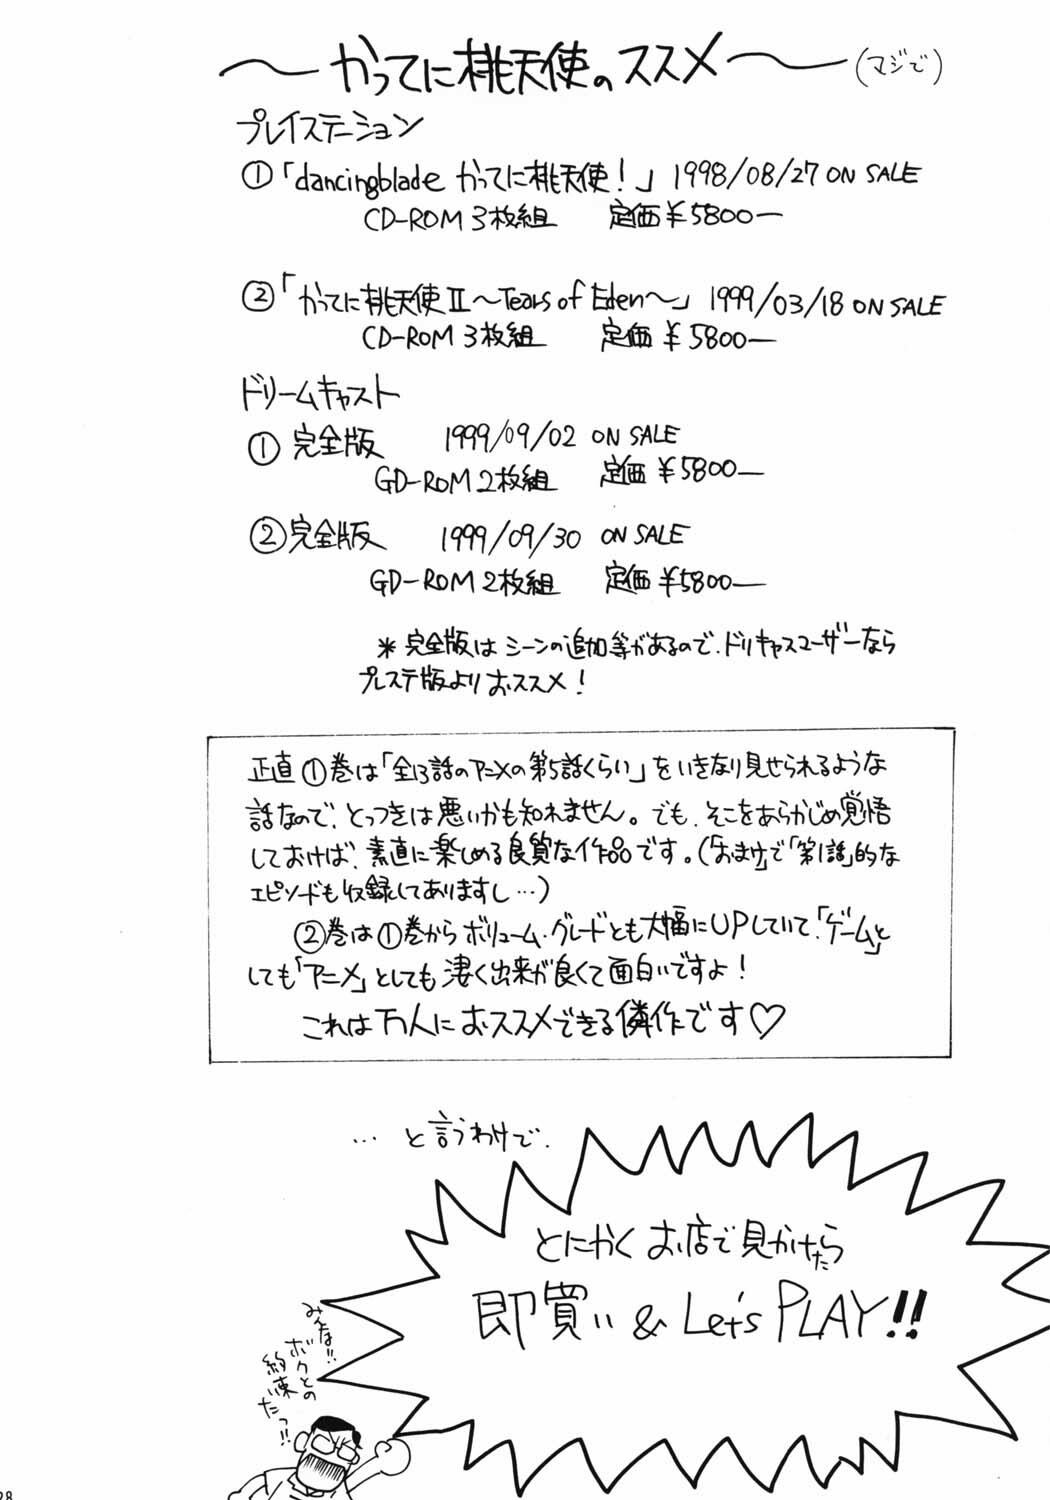 ～かってに桃天使のススメ～(マジで)
プレイステーション
①「dancingblade かってに桃天使!」 1998/08/27 ON SALE
CD-ROM 3枚組 定価¥5800ー
②「かってに桃天使Ⅱ～Tears of Eden～」 1999/03/18 ON SALE
CD-ROM 3枚組 定価¥5800ー
ドリームキャスト
① 完全版 1999/09/02 ON SALE
GD-ROM 2枚組 定価¥5800ー
②完全版 1999/09/30 ON SALE
GD-ROM 2枚組 定価¥5800ー
*完全版はシーンの追加等があるので、ドリキャスユーザーなら
プレステ版よりおススメ!
正直①巻は「全13話のアニメの第5話くらい」をいきなり見せられるような
話なので、とっつきは悪いかも知れません。でも、そこをあらかじめ覚悟
しておけば、素直に楽しめる良質な作品です。(「おまけ」で「第1話」的な
エピソードも収録してありますし…)
②巻は①巻からボリューム・グレードとも大幅にUPしていて、「ゲーム」と
しても「アニメ」としても凄く出来が良くて面白いですよ!
これは万人におススメできる傑作です♡
… と言うわけで、
とにかくお店で見かけたら
即買い & Let's PLAY!!
みんな!!
ボクとの
約束だっ!!
28